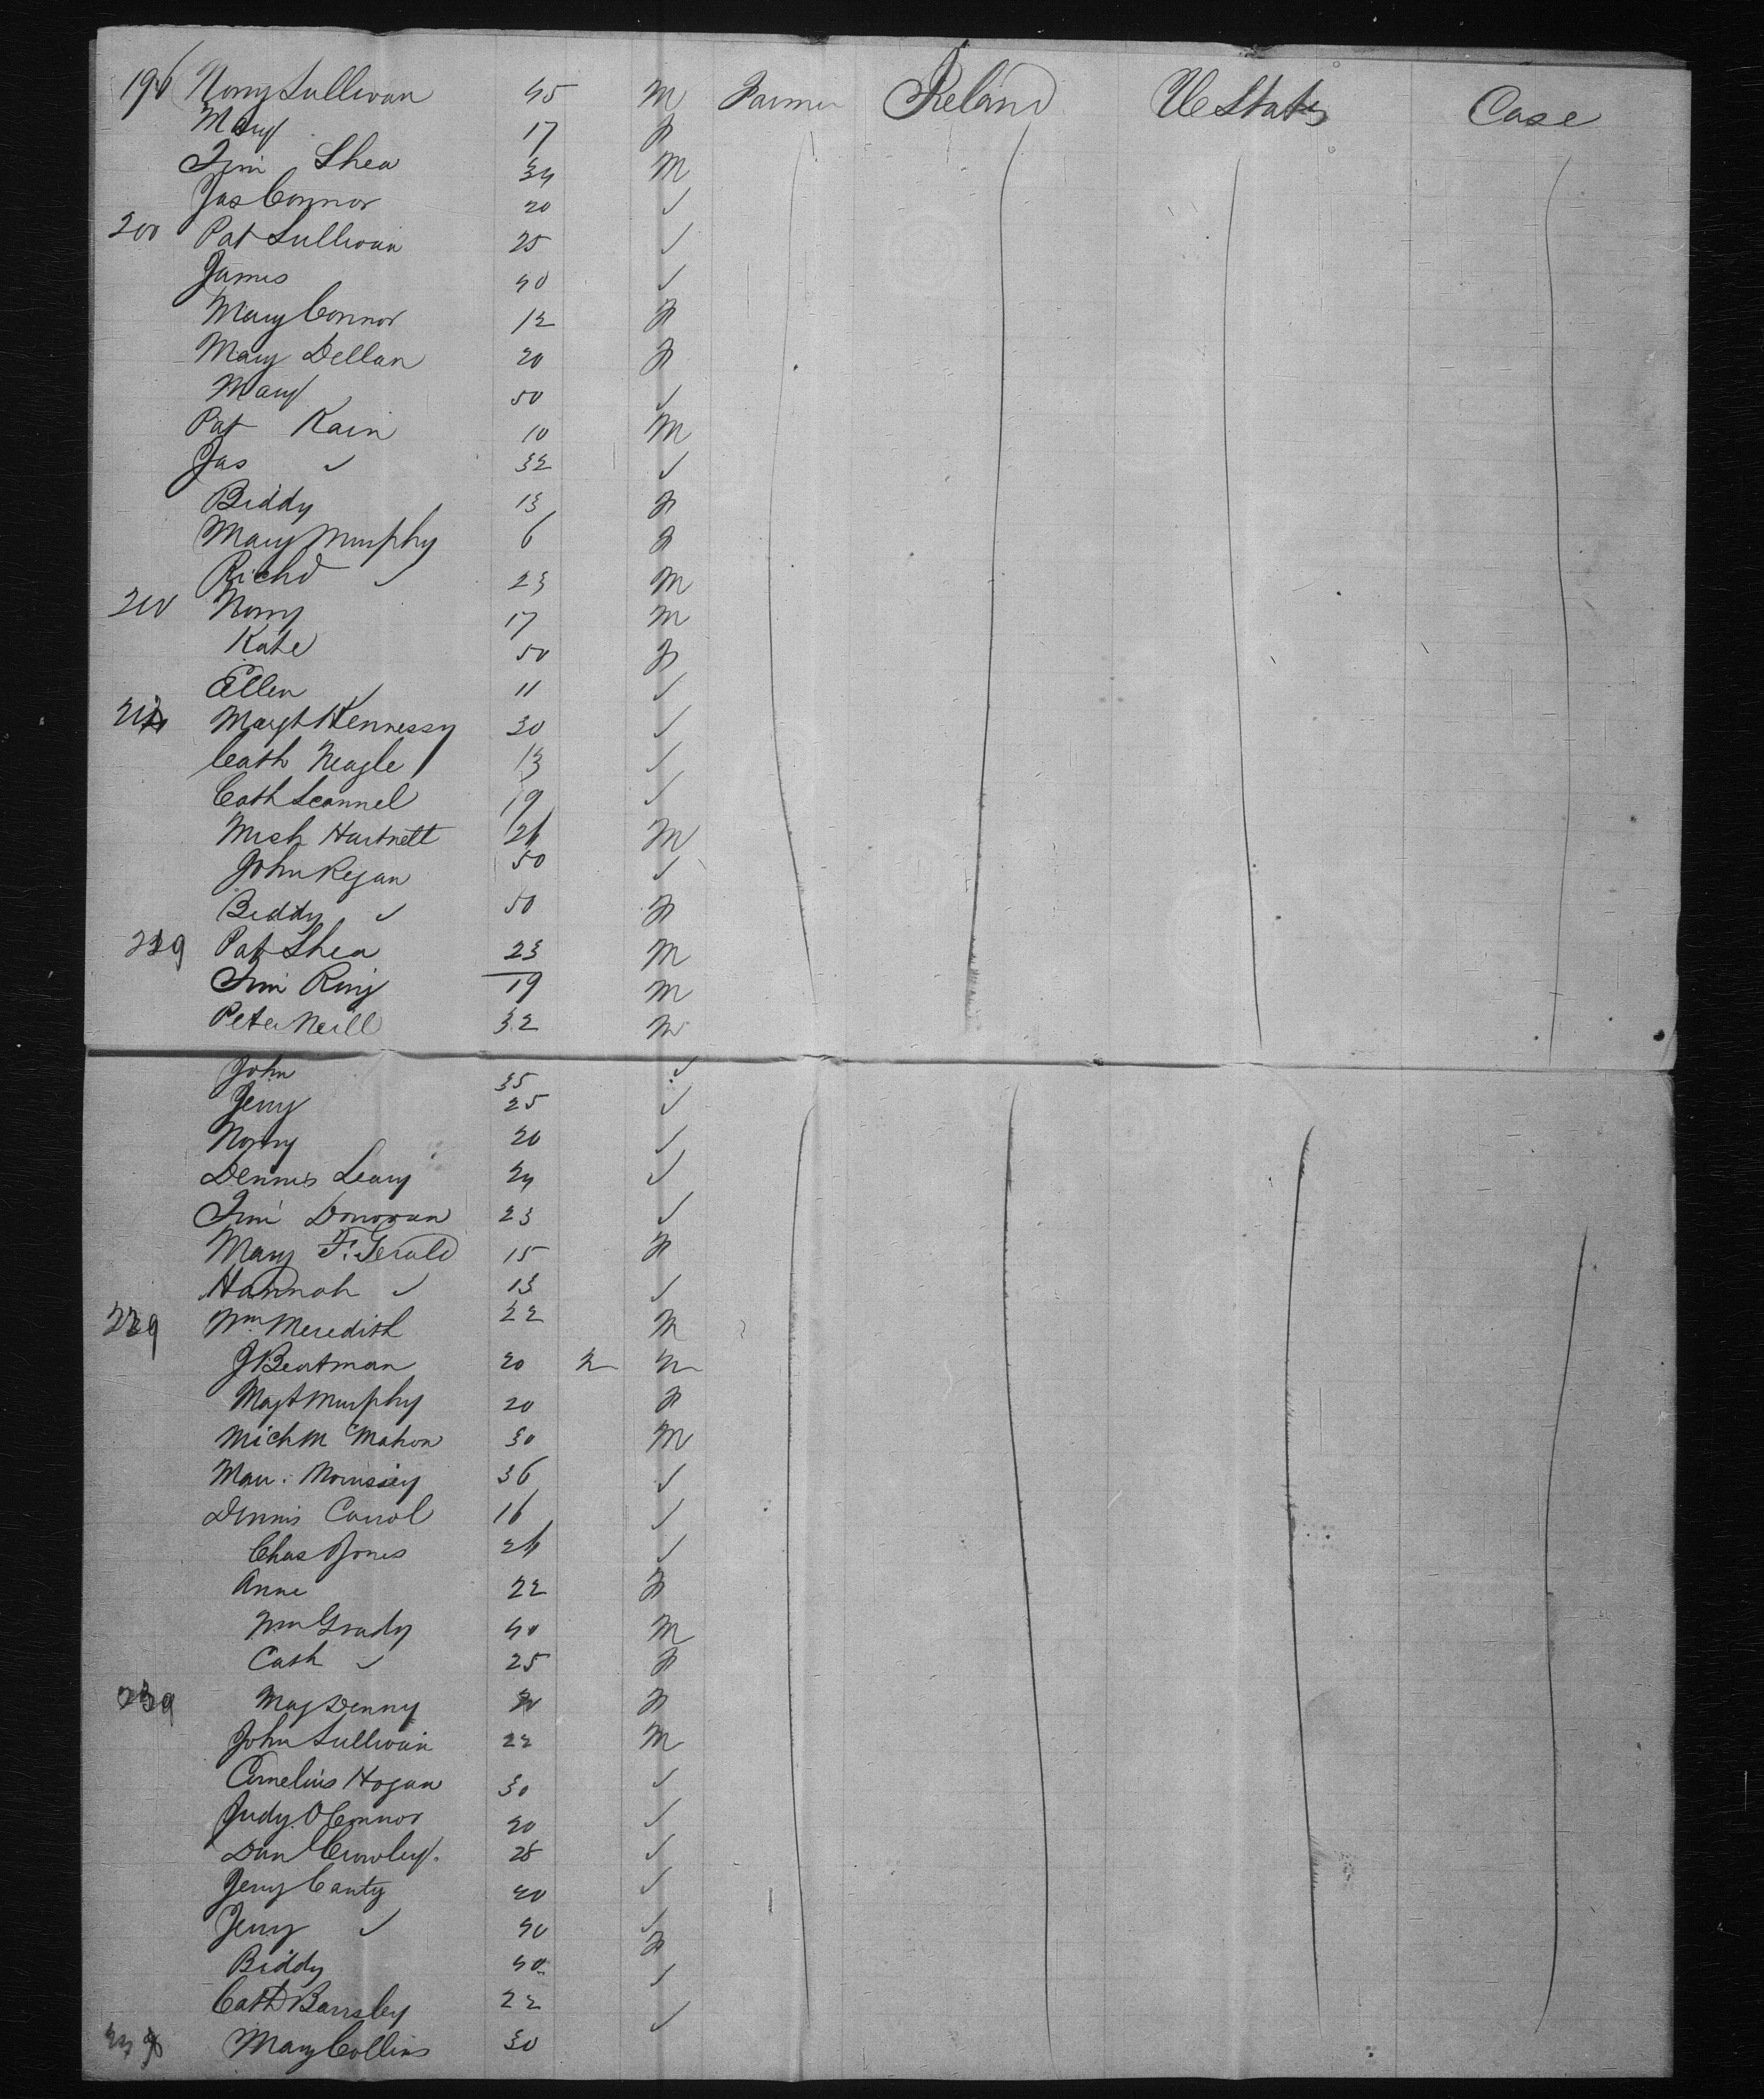 196 Norry Sullivan 45 M Farmer Ireland Ue States Case
Mary 17 F
Tim Shea 34 M
Jas Connor 20 ✓
200 Pat Sullivan 25 ✓
James 40 ✓
Mary Connor 12 F
Mary Dellan 20 F
Mary 50 ✓
Pat Kain 10 M
Jas ✓ 32 ✓
Biddy 13 F
Mary Murphy 6 F
Richd ✓ 23 M
210 Norry 17 M
Kate 50 F
Ellen ✓ 11 ✓
Margt Hennessy 30 ✓
Cath Neagle 13 ✓
Cath Scannel 19 ✓
Mich Hartnett 26 M
John Regan 50 ✓
Biddy ✓ 50 F
219 Pat Shea 23 M
Tim Ring 19 M
Peter Neill 32 M
John 35 ✓
Jerry 25 ✓
Norry 20 ✓
Dennis Leary 24 ✓
Tim Donovan 23 ✓
Mary F. Gerald 15 F
Hannah ✓ 13 ✓
229 Wm Meredith 22 M
J Beatman 20 M M
Magt Murphy 20 F
Mich M Mahon 30 M
Mau. Morrissey 36 ✓
Dennis Carrol 16 ✓
Chas Jones 24 ✓
Anne 22 F
Wm Grady 40 M
Cath ✓ 25 F
239 Mag Denny F
John Sullivan 22 M
Cornelius Hogan 30 ✓
Judy O Connor 20 ✓
Dan Crowley. 28 ✓
Jerry Canty 20 ✓
Jerry ✓ 40 ✓
Biddy 40 F
Cath Barsley 22 ✓
Mary Collins 30 ✓